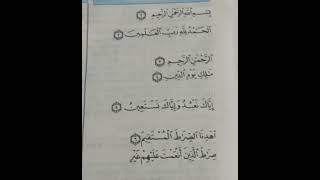 بِسْمِ اللَّهِ الرَّحْمَٰنِ الرَّحِيمِ ۝١
الْحَمْدُ لِلَّهِ رَبِّ الْعَالَمِينَ ۝٢
الرَّحْمَٰنِ الرَّحِيمِ ۝٣
مَالِكِ يَوْمِ الدِّينِ ۝٤
إِيَّاكَ نَعْبُدُ وَإِيَّاكَ نَسْتَعِينُ ۝٥
اهْدِنَا الصِّرَاطَ الْمُسْتَقِيمَ ۝٦
صِرَاطَ الَّذِينَ أَنْعَمْتَ عَلَيْهِمْ غَيْرِ